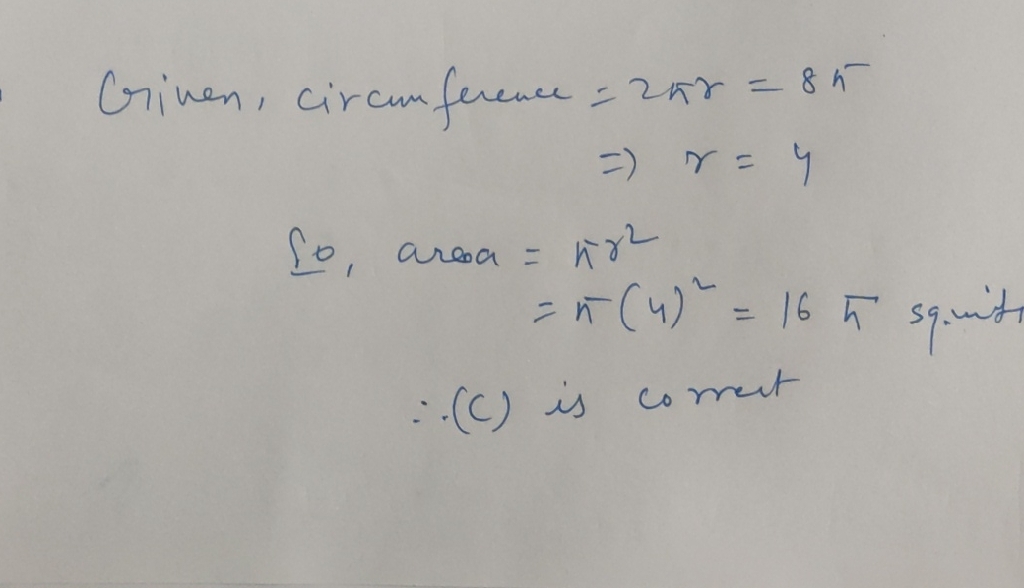 Given, circumference = 2πr = 8π
=) r = 4
So, area = πr²
= π(4)² = 16 π sq.units
∴ (C) is correct